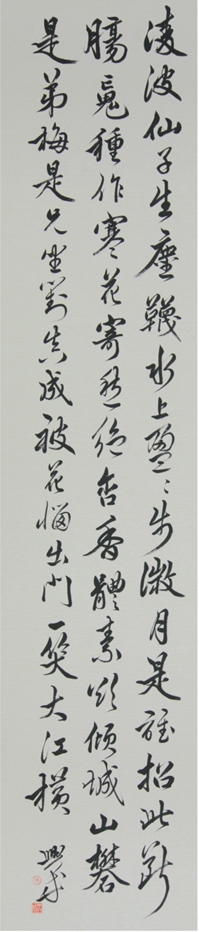 淩波仙子生塵韈水上盈〻步微月是誰招此斷
腸魂種作寒花寄愁絕含香體素欲傾城山礬
是弟梅是兄坐對真成被花惱出門一笑大江橫